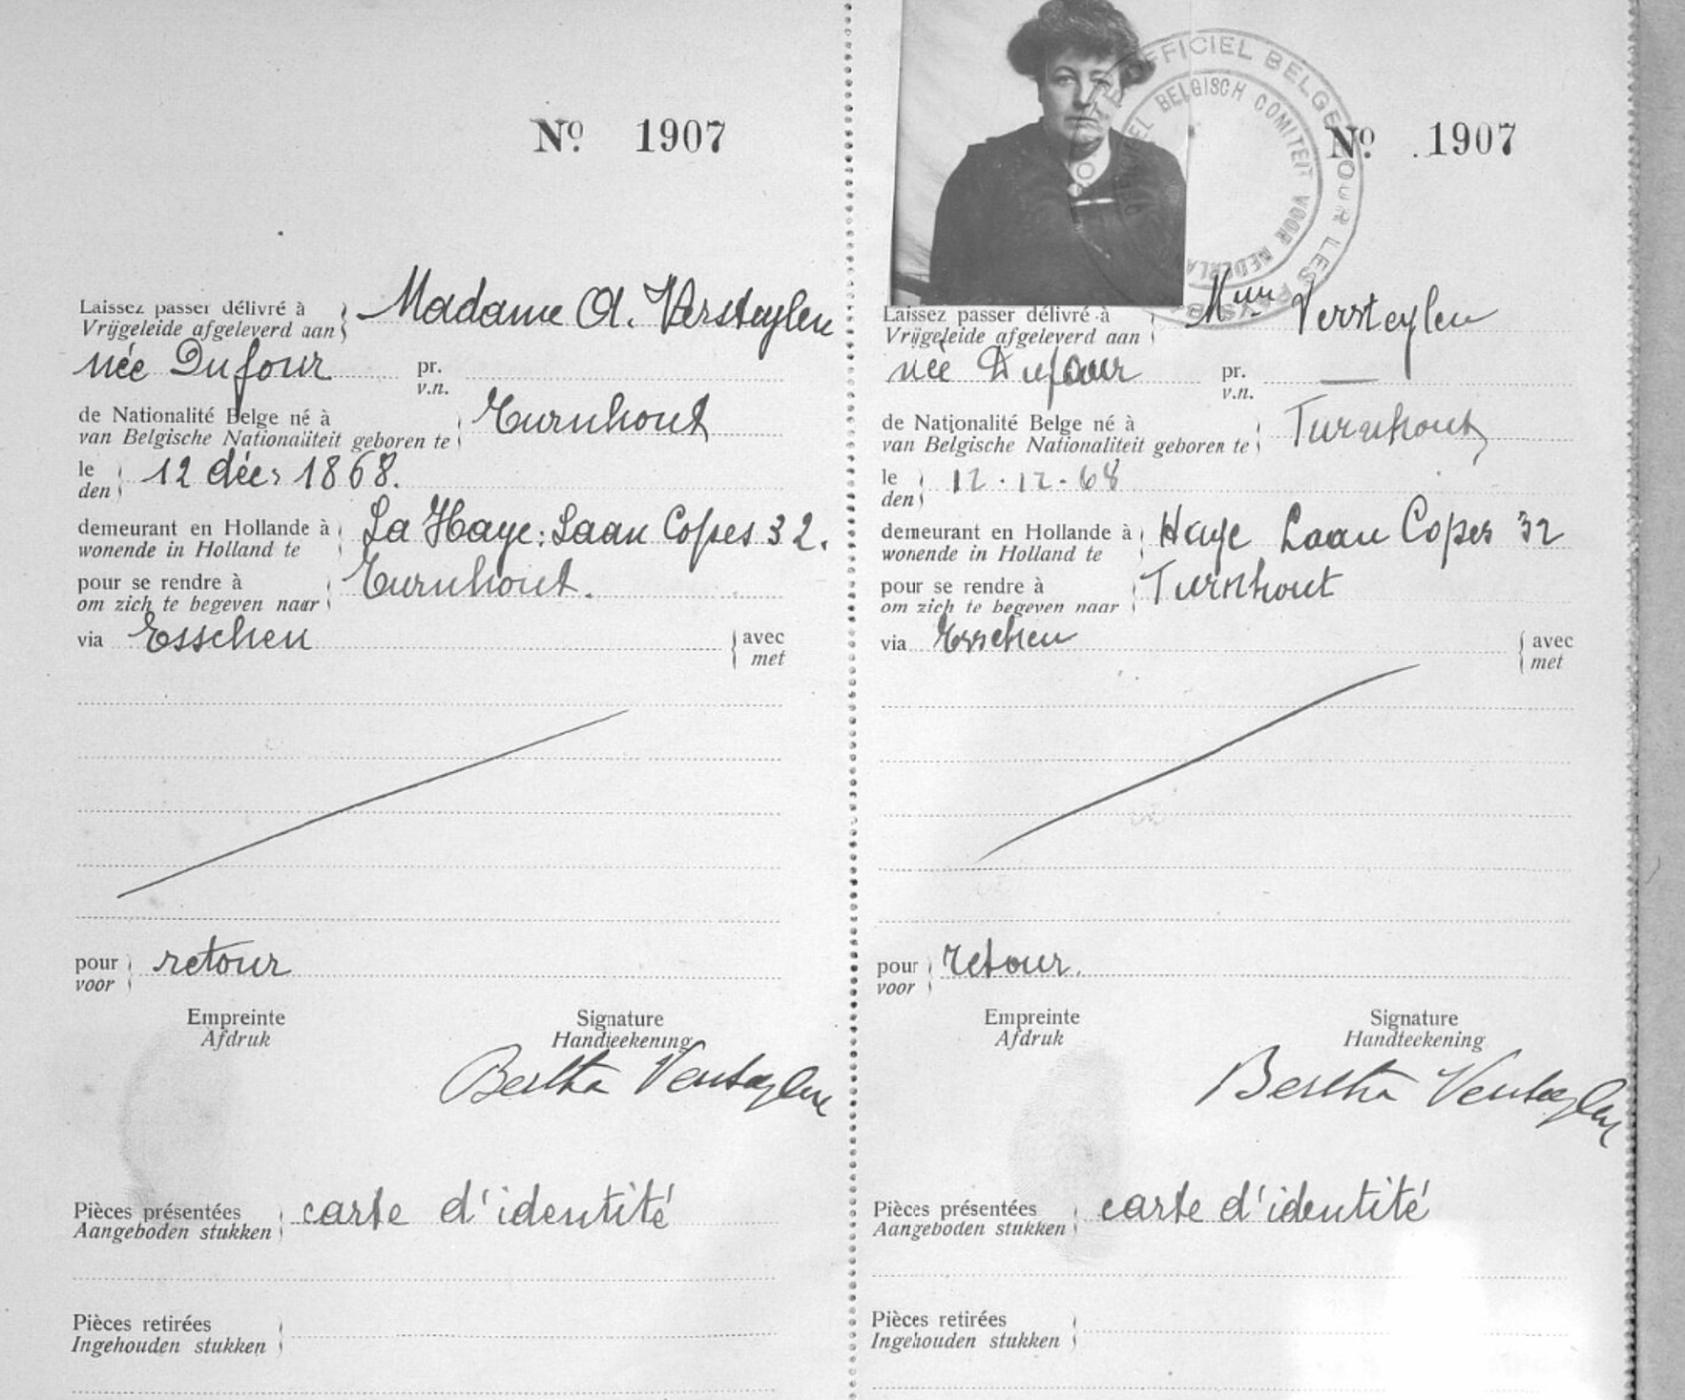 Nº 1907
Laissez passer délivré à
Vrijgeleide afgeleverd aan
Madame A. Versteylen
née Dufour
pr.
v.n.
de Nationalité Belge né à
van Belgische Nationaliteit geboren te
Turnhout
le
den
12 déc: 1868.
demeurant en Hollande à
wonende in Holland te
La Haye: Laan Copes 32.
pour se rendre à
om zich te begeven naar
Turnhout.
via Esschen
avec
met
pour
voor
retour
Empreinte
Afdruk
Signature
Handteekening
Bertha Versteylen
Pièces présentées
Aangeboden stukken
carte d'identité
Pièces retirées
Ingehouden stukken
OFFICIEL BELGE POUR LES
BELGISCH COMITEIT VOOR NEDERLA
Nº 1907
Laissez passer délivré à
Vrijgeleide afgeleverd aan
Mme Versteylen
née Dufour
pr.
v.n.
de Nationalité Belge né à
van Belgische Nationaliteit geboren te
Turnhout
le
den
12.12.68
demeurant en Hollande à
wonende in Holland te
Haye Laan Copes 32
pour se rendre à
om zich te begeven naar
Turnhout
via Esschen
avec
met
pour
voor
retour.
Empreinte
Afdruk
Signature
Handteekening
Bertha Versteylen
Pièces présentées
Aangeboden stukken
carte d'identité
Pièces retirées
Ingehouden stukken